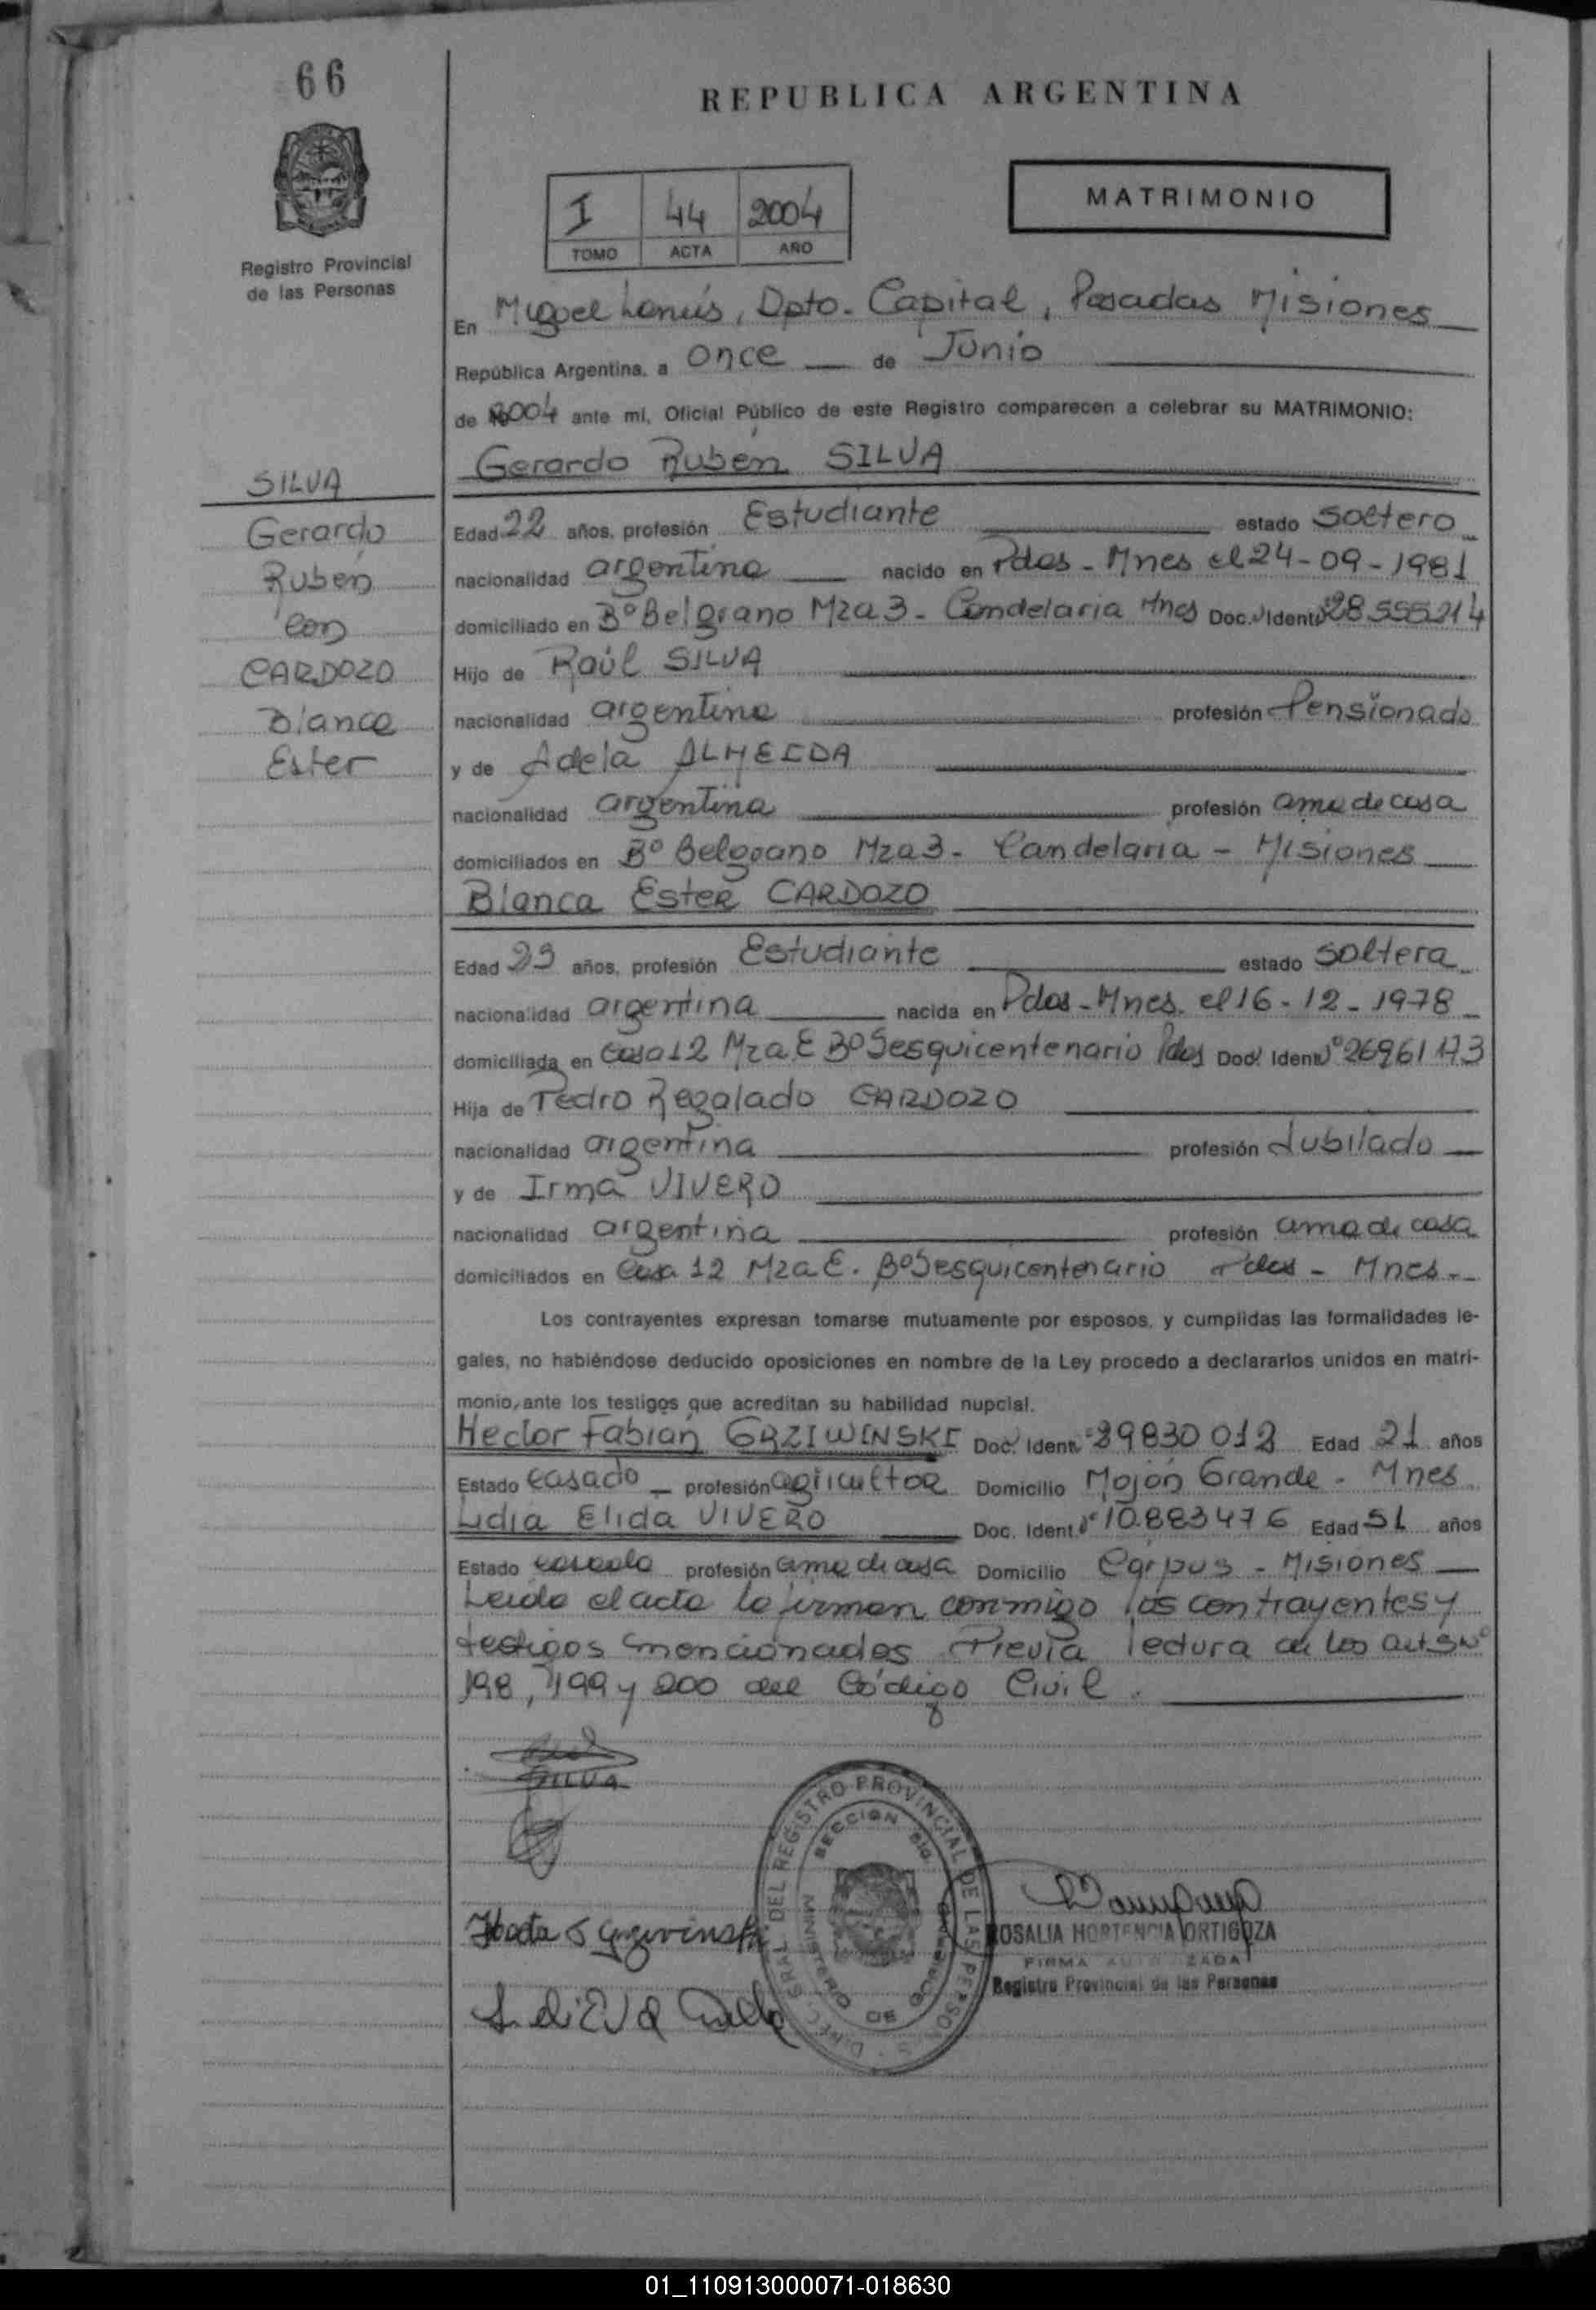 66
REPUBLICA ARGENTINA
Registro Provincial
de las Personas
I 44 2004
TOMO ACTA AÑO
MATRIMONIO
En Miguel Lanús, Dpto. Capital, Posadas Misiones
República Argentina, a once de Junio
de 2004 ante mi, Oficial Público de este Registro comparecen a celebrar su MATRIMONIO:
Gerardo Rubén SILVA
SILVA
Gerardo
Rubén
con
CARDOZO
Blanca
Ester
Edad 22 años, profesión Estudiante estado soltero
nacionalidad argentina nacido en Pdas - Mnes el 24-09-1981
domiciliado en B° Belgrano Mza 3 - Candelaria Mnes Doc. Ident. N°
Hijo de Raúl SILVA
nacionalidad argentina profesión Pensionado
y de Adela ALMEIDA
nacionalidad argentina profesión ama de casa
domiciliados en B° Belgrano Mza 3 - Candelaria - Misiones
Blanca Ester CARDOZO
Edad años, profesión Estudiante estado soltera
nacionalidad argentina nacida en Pdas - Mnes. el 16-12-1978
domiciliada en Casa 12 Mza E B° Sesquicentenario Pdas Doc. Ident. N° 26961173
Hija de Pedro Regalado CARDOZO
nacionalidad argentina profesión Jubilado
y de Irma VIVERO
nacionalidad argentina profesión ama de casa
domiciliados en Casa 12 Mza E. B° Sesquicentenario Pdas - Mnes.
Los contrayentes expresan tomarse mutuamente por esposos, y cumplidas las formalidades le-
gales, no habiéndose deducido oposiciones en nombre de la Ley procedo a declararlos unidos en matri-
monio, ante los testigos que acreditan su habilidad nupcial.
Hector Fabián GRZIWINSKI Doc. Ident. Edad 21 años
Estado casado profesión agricultor Domicilio Mojón Grande - Mnes
Lidia Elida VIVERO Doc. Ident. N° 10.883476 Edad 51 años
Estado casada profesión ama de casa Domicilio Corpus - Misiones
Leida el acta la firman conmigo los contrayentes y
testigos mencionados Previa lectura de los arts N°
198, 199 y 200 del Código Civil.
SILVA
DIREC. GRAL. DEL REGISTRO PROVINCIAL DE LAS PERSONAS
SECCION
MINISTERIO DE GOBIERNO
ROSALIA HORTENCIA ORTIGOZA
FIRMA AUTORIZADA
Registro Provincial de las Personas
01_110913000071-018630